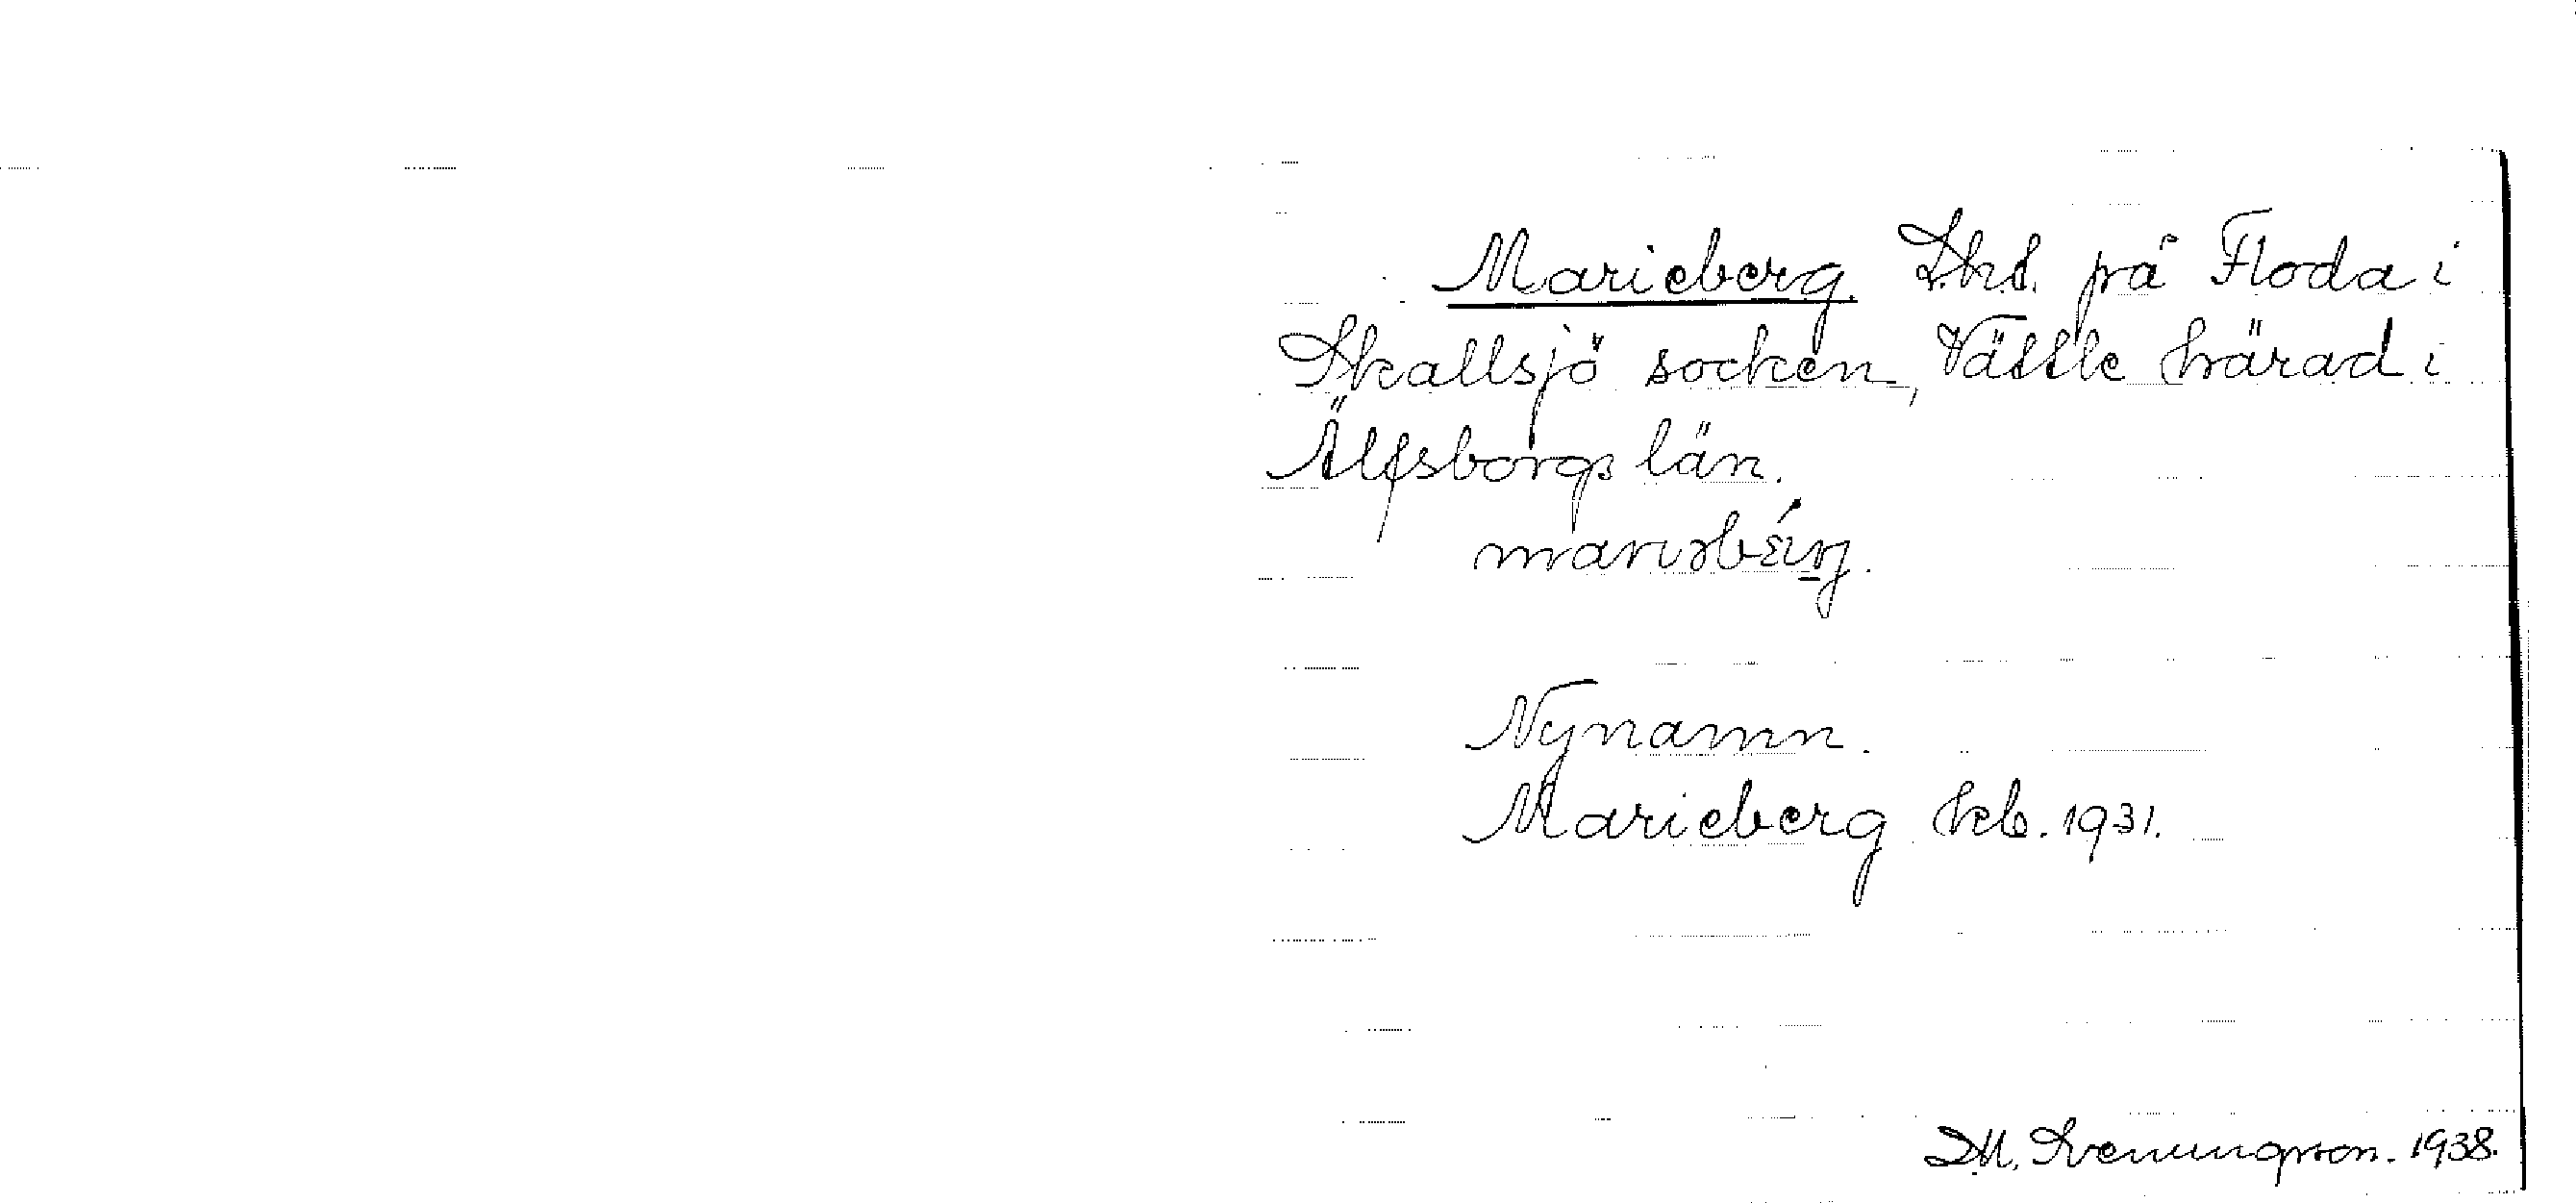 Marieberg. Lht. på Floda i
Skallsjö socken, Vättle härad i
Älfsborgs län.
Nynamn.
Marieberg kb. 1931.
D.M. Svenungsson. 1938.